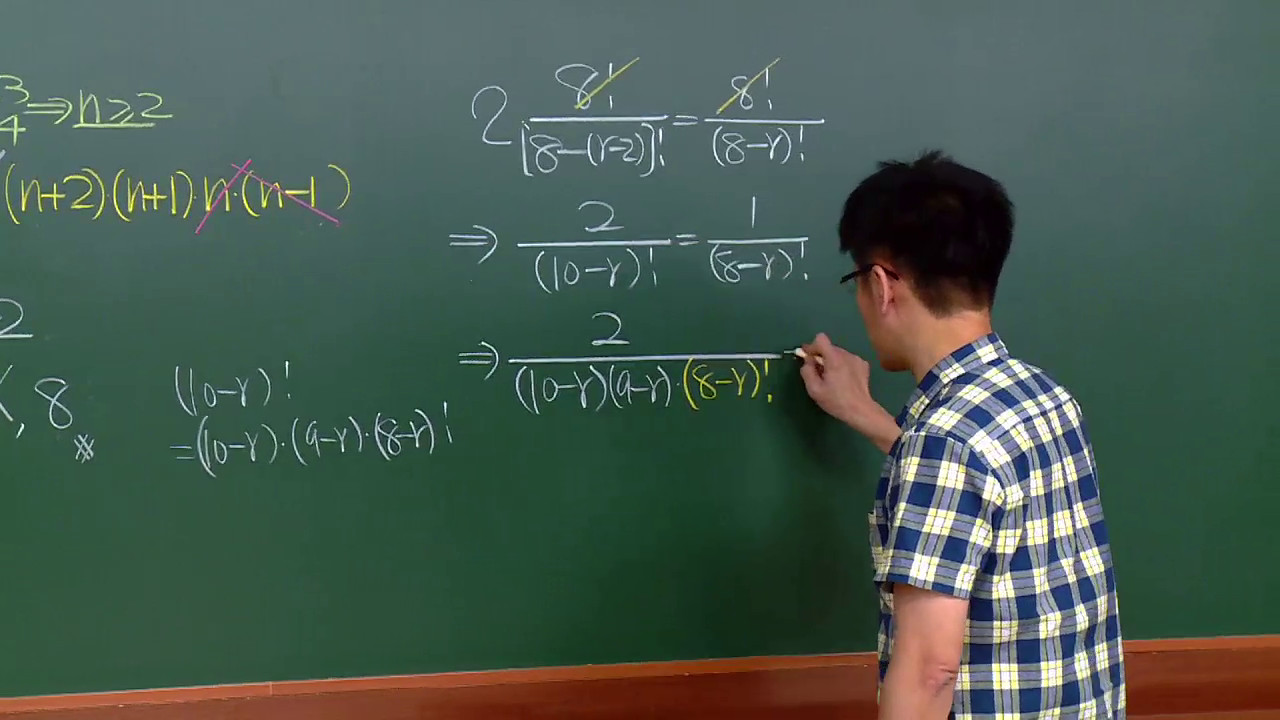 3/4 ⇒ n≥2
(n+2)·(n+1)·n·(n-1)
2
, 8
※
(10-r)!
=(10-r)·(9-r)·(8-r)!
2 8!/[8-(r-2)]! = 8!/(8-r)!
⇒ 2/(10-r)! = 1/(8-r)!
⇒ 2/(10-r)(9-r)·(8-r)!